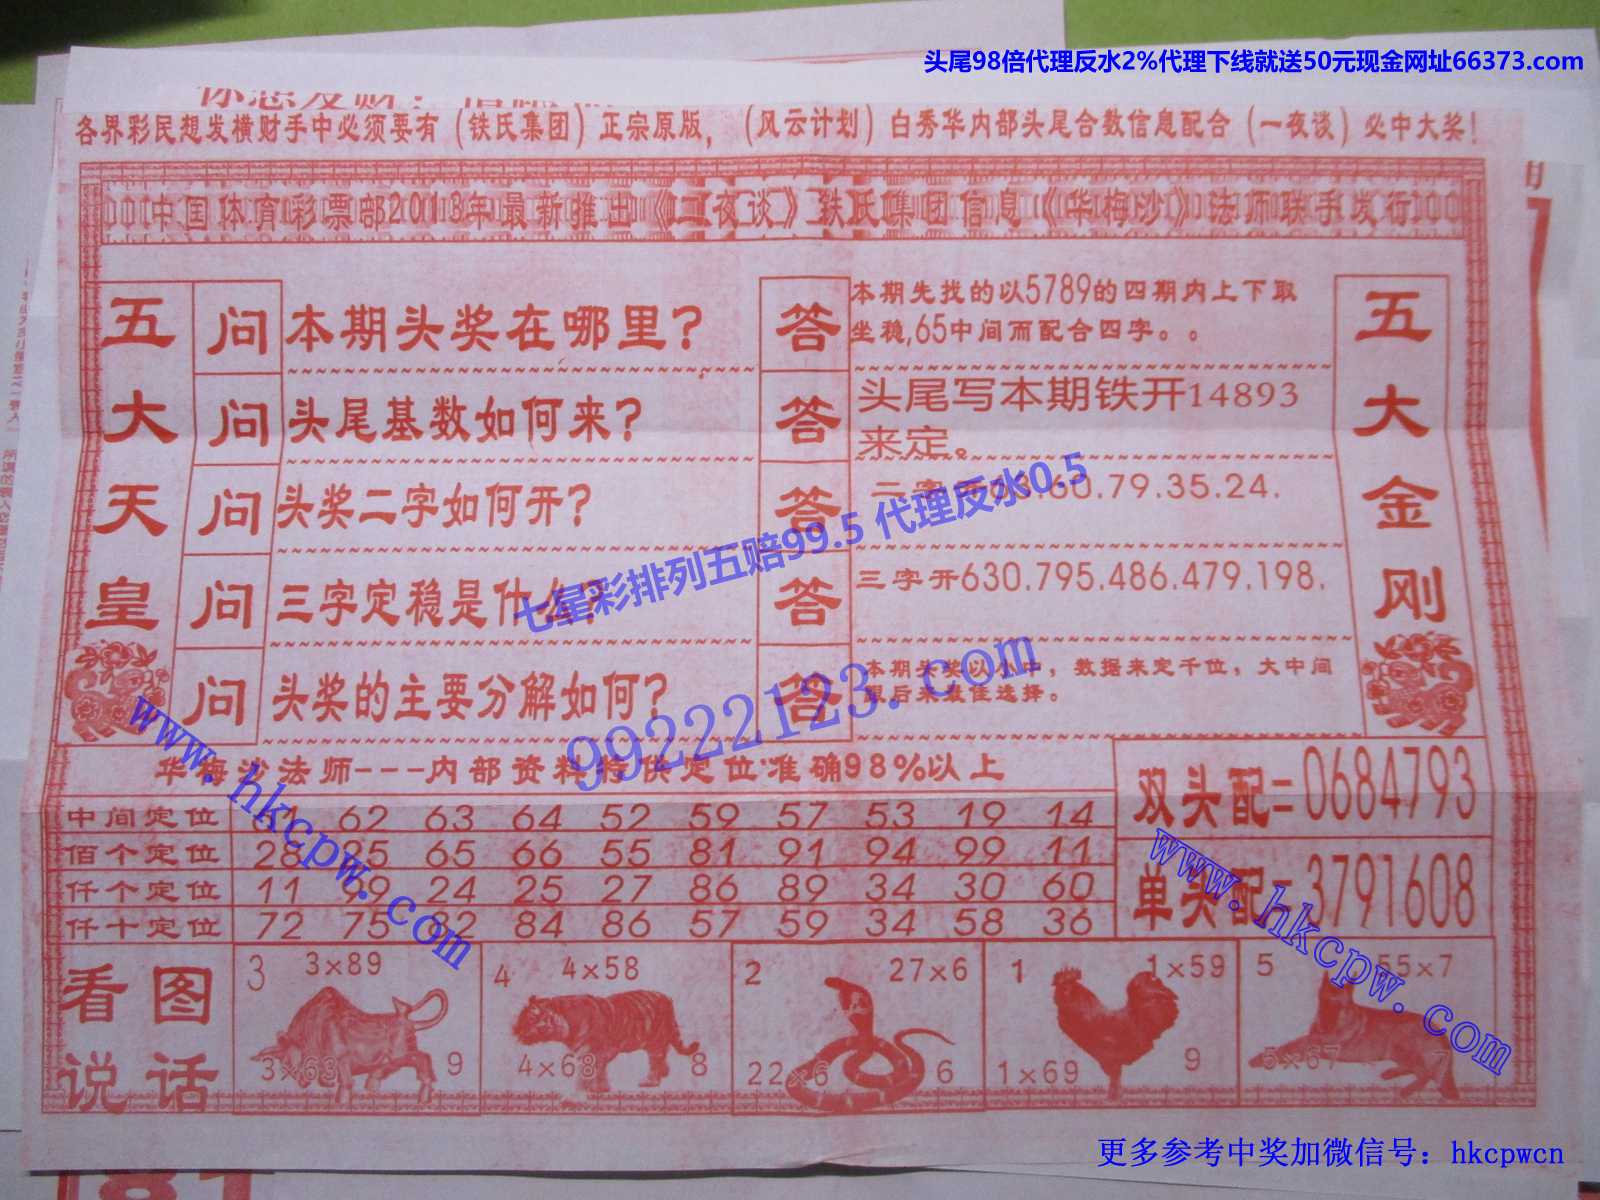 头尾98倍代理反水2%代理下线就送50元现金网址66373.com
各界彩民想发横财手中必须要有（铁氏集团）正宗原版，（风云计划）白秀华内部头尾合数信息配合（一夜谈）必中大奖！
中国体育彩票部2013年最新推出《二夜谈》铁氏集团信息《华梅沙》法师联手发行
五大天皇
问 本期头奖在哪里？
答 本期先找的以5789的四期内上下取
坐稳,65中间而配合四字。。
问 头尾基数如何来？
答 头尾写本期铁开14893
来定。
问 头奖二字如何开？
答 二字 63.60.79.35.24.
问 三字定稳是什么？
答 三字开630.795.486.479.198.
问 头奖的主要分解如何？
答 本期头奖以小中，数据来定千位，大中间
最后来最佳选择。
五大金刚
七星彩排列五赔99.5 代理反水0.5
99222123.com
www.hkcpw.com
华梅沙法师---内部资料特供定位准确98%以上
中间定位 62 63 64 52 59 57 53 19 14
佰个定位 28 85 65 66 55 81 91 94 99 11
仟个定位 11 69 24 25 27 86 89 34 30 60
仟十定位 72 75 82 84 86 57 59 34 58 36
双头配=0684793
单头配=3791608
www.hkcpw.com
看图说话
3 3×89
3×63 9
4 4×58
4×68 8
2 27×6
22×6 6
1 1×59
1×69 9
5 55×7
5×67 7
更多参考中奖加微信号：hkcpwcn